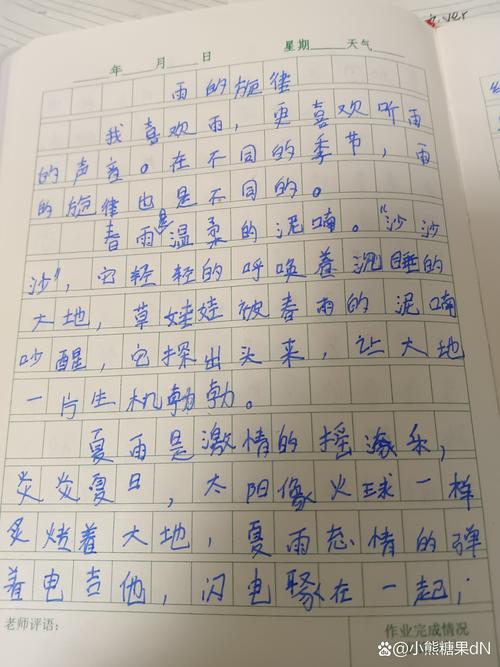 年 月 日 星期 天气
雨的旋律
我喜欢雨，更喜欢听雨
的声音。在不同的季节，雨
的旋律也是不同的。
春雨是温柔的泥喃。“沙沙
沙”，它轻轻的呼唤着沉睡的
大地，草娃娃被春雨的泥喃
吵醒，它探出头来，让大地
一片生机勃勃。
夏雨是激情的摇滚乐，
炎炎夏日，太阳像火球一样
炙烧着大地，夏雨恣情的弹
着电吉他，闪电聚在一起；
老师评语： 作业完成情况
@小熊糖果dN